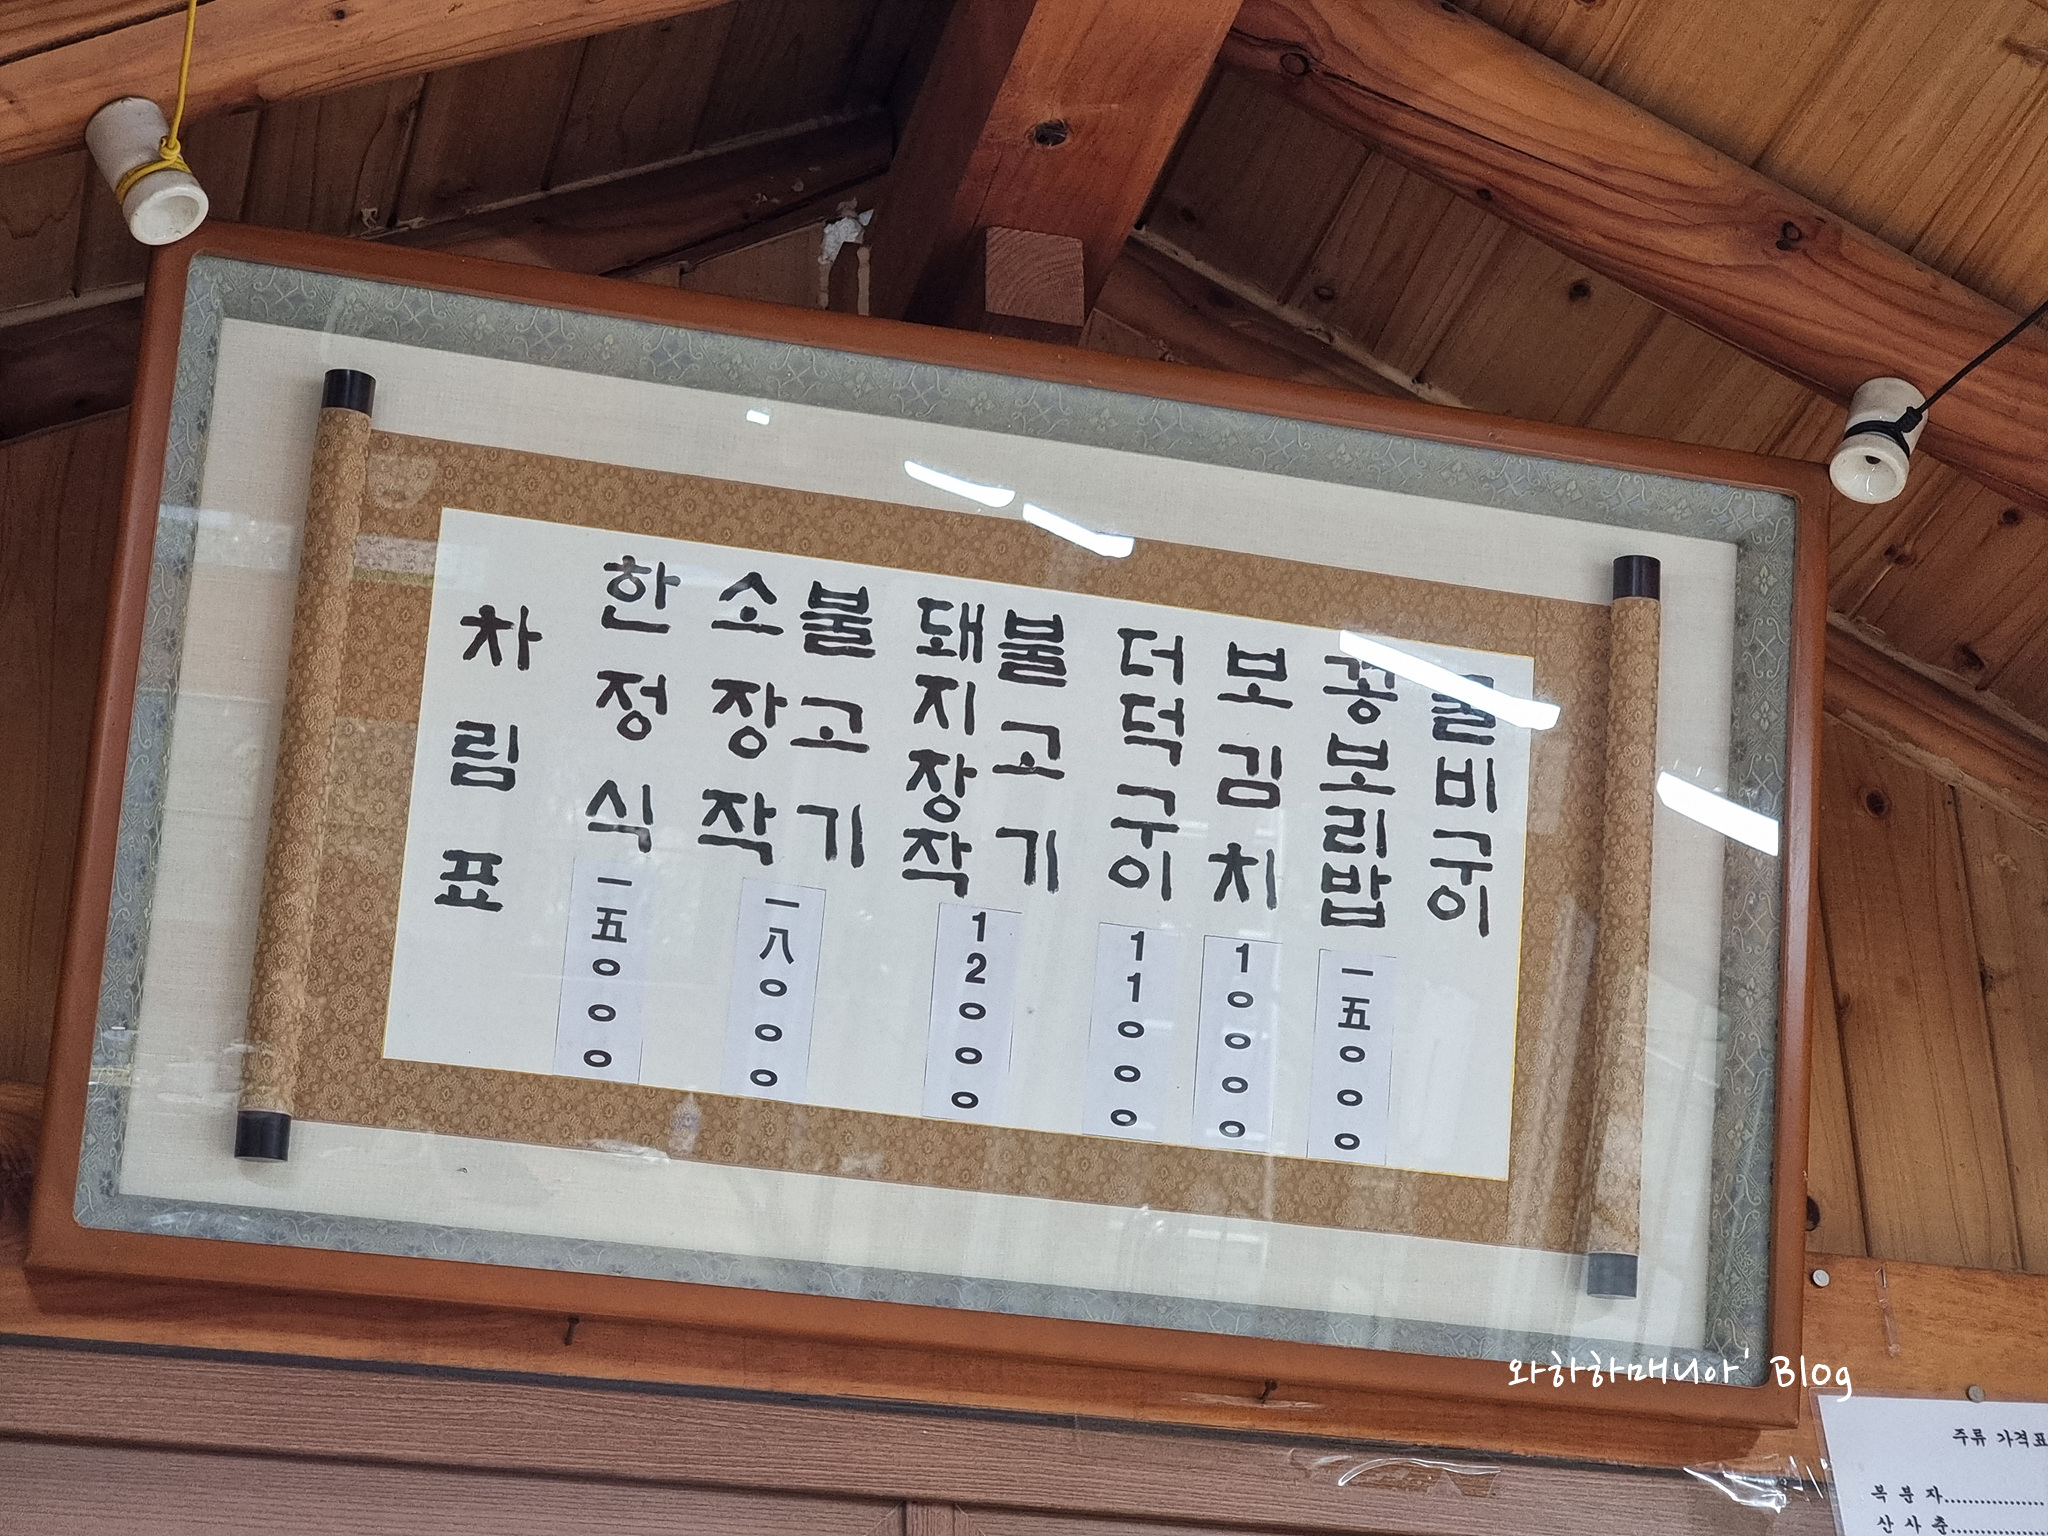 차림표
한정식
一五ㅇㅇㅇ
소장작
불고기
一八ㅇㅇㅇ
돼지장작
불고기
12ㅇㅇㅇ
더덕구이
11ㅇㅇㅇ
보김치
1ㅇㅇㅇㅇ
꽁보리밥
一五ㅇㅇㅇ
굴비구이
와하하매니아' Blog
주류 가격표
복분자
산사춘